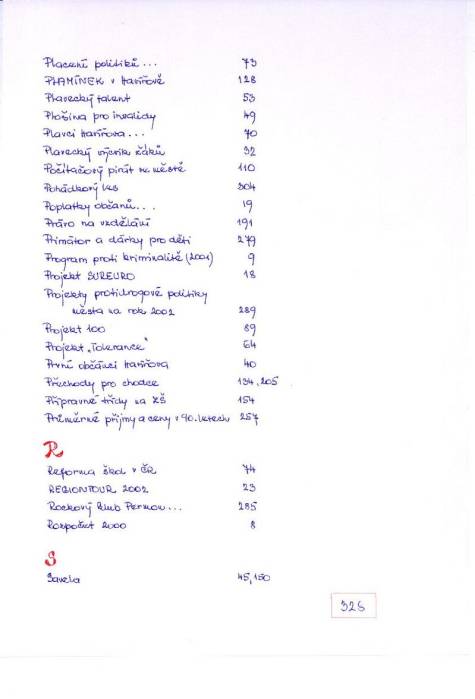 Placení politiků... 73
PLAMÍNEK v Havířově 128
Plavecký talent 53
Plošina pro invalidy 49
Plavci Havířova... 70
Plavecký výcvik žáků 32
Počítačový pirát ve městě 110
Pohádkový les 304
Poplatky občanů... 19
Právo na vzdělání 191
Primátor a dárky pro děti 279
Program proti kriminalitě (2001) 9
Projekt SUREURO 18
Projekty protidrogové politiky
města na rok 2002 289
Projekt 100 89
Projekt „Tolerance“ 64
První občánci Havířova 40
Přechody pro chodce 134, 205
Přípravné třídy na ZŠ 154
Průměrné příjmy a ceny v 90. letech 257
R
Reforma škol v ČR 74
REGIONTOUR 2002 23
Rockový klub Permon... 285
Rozpočet 2000 8
S
Savela 45, 150
326